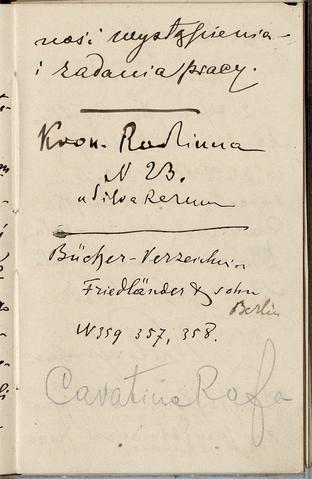 ności wystąpienia
i zadania pracy.
Kron. Rodzinna
N 23.
„Silva Rerum
Bücher-Verzeichniss
Friedländer & sohn
Berlin
N 359 357, 358.
Cavatina Rafa